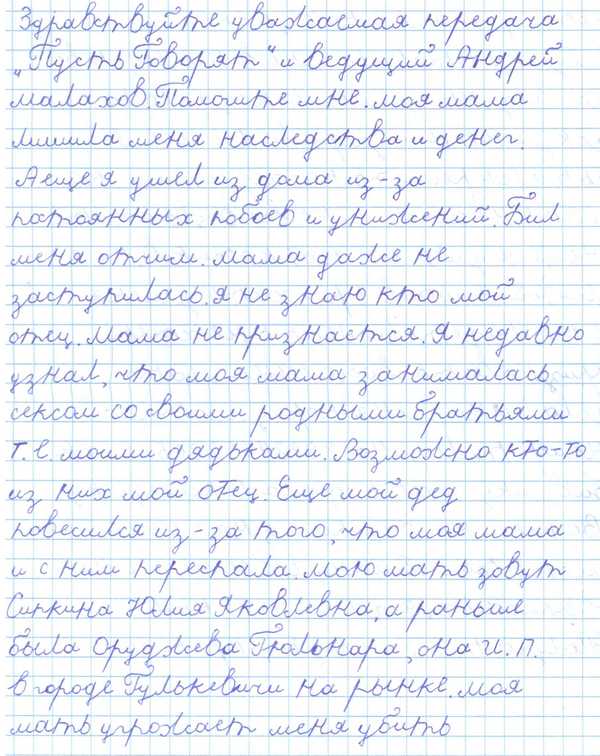 Здравствуйте уважаемая передача
„Пусть Говорят" и ведущий Андрей
малахов. Помогите мне. моя мама
лишила меня наследства и денег.
А еще я ушел из дома из-за
постоянных побоев и унижений. Бил
меня отчим. мама даже не
заступилась. я не знаю кто мой
отец. Мама не признается. Я недавно
узнал, что моя мама занималась
сексом со своими родными братьями
т.е. моими дядьками. Возможно кто-то
из них мой отец. Еще мой дед
повесился из-за того, что моя мама
и с ним переспала. мою мать зовут
Сиркина Юлия Яковлевна, а раньше
была Оруджева Гюльнара, она И.П.
в городе Гулькевичи на рынке. моя
мать угрожает меня убить